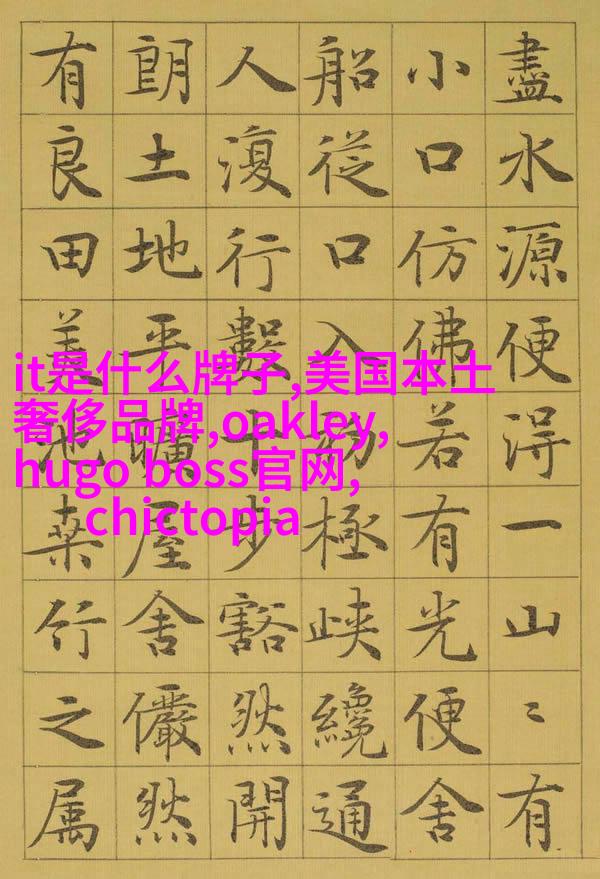 盡水源便得一山〻有
小口仿佛若有光便舍
船從口入初極峽纔通
人復行數十步豁然開
朗土地平曠屋舍儼然
有良田美池桑竹之属
it是什么牌子,美国本土
奢侈品牌,oakley,
hugo boss官网,
chictopia